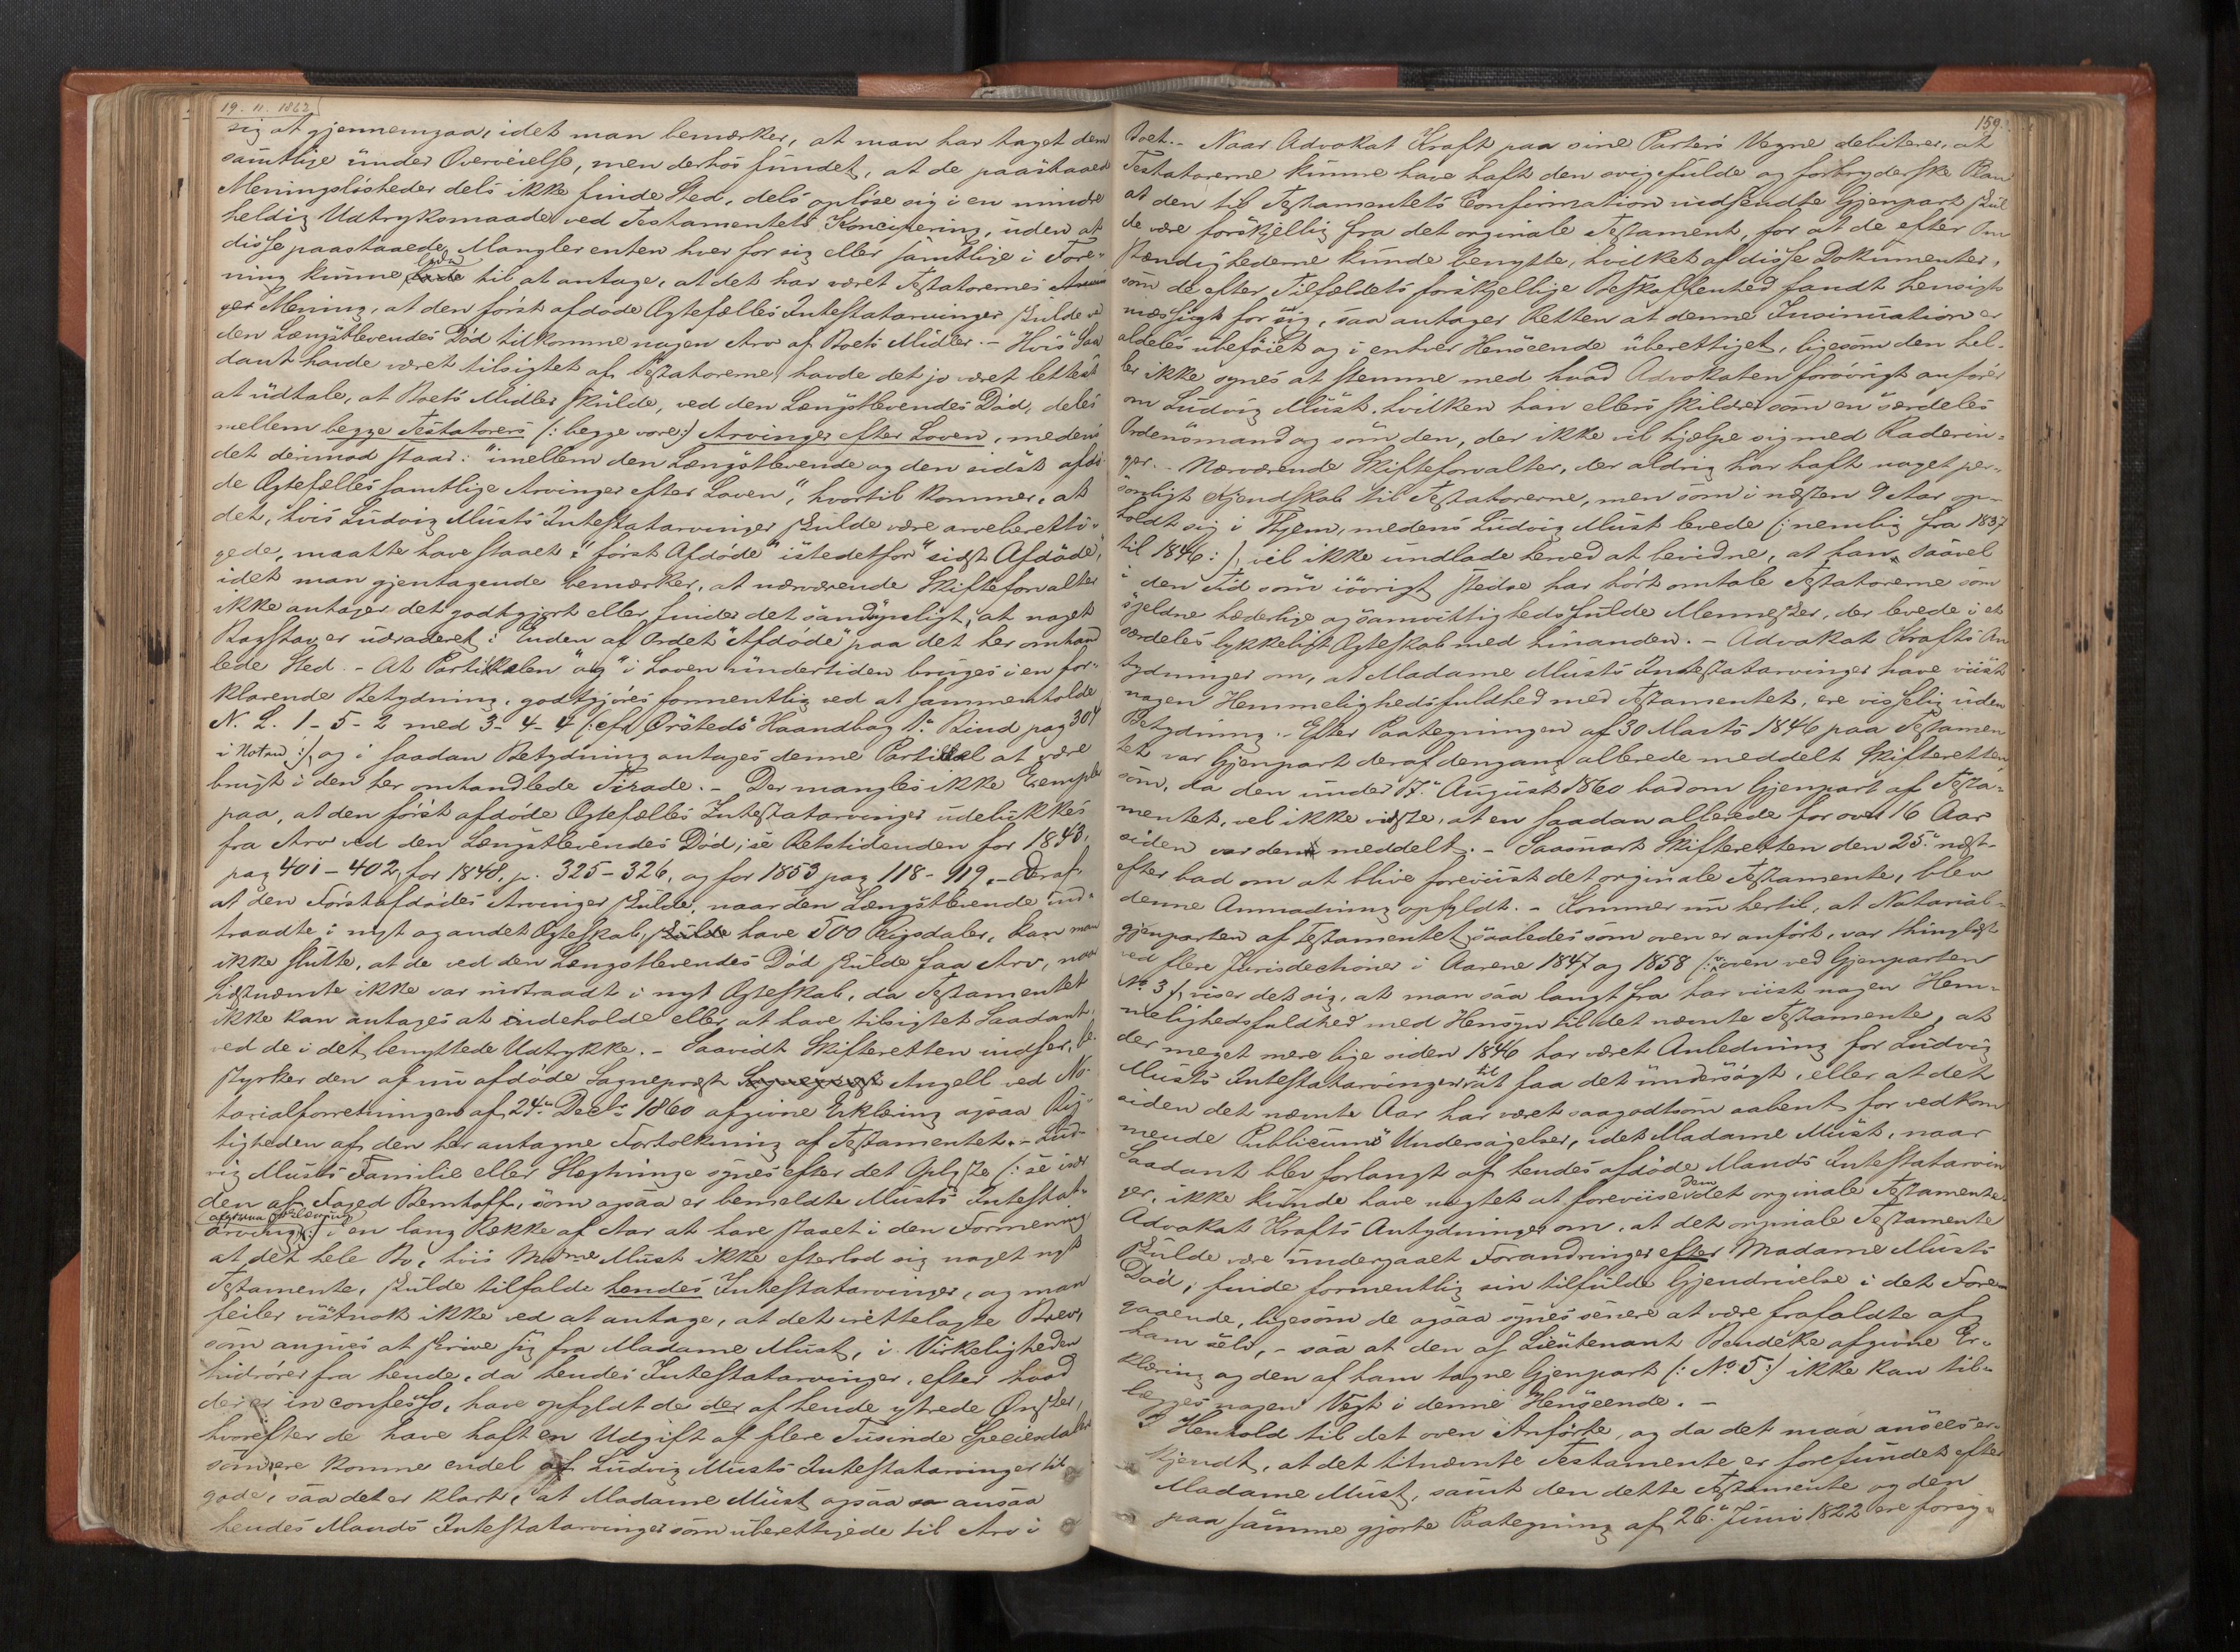 19. 11. 1862
sig at gjennemgaa, idet man bemærker, at man har taget dem
samtlige under Overveielse, men derhos fundet, at de paastaaede
Meningsløsheder dels ikke finde Sted, dels opløse sig i en mindre
heldig Udtryksmaade ved Testamentets Koncipering, uden at
disse paastaaede Mangler enten hver for sig eller samtlige i Fore-
ning kunne lede til at antage, at det har været Testatorernes
ger Mening, at den først afdøde Ægtefælles Intestatarvinger skulde ved
den Længstlevendes Død tilkomme nogen Arv af Boets Midler. – Hvis Saa
dant havde været tilsigtet af Testatorerne, havde det jo været lettest
at udtale, at Boets Midler skulde, ved den Længstlevendes Død, deles
mellem begge Testatorers (: begge vore :) Arvinger efter Loven, medens
det derimod staar: "imellem den Længstlevende og den sidst afdø-
de Ægtefælles samtlige Arvinger efter Loven", hvortil kommer, at
det, hvis Ludvig Müsts Intestatarvinger skulde være arveberetti-
gede, maatte have staaet: "først Afdøde" istedetfor "sidst Afdøde",
idet man gjentagende bemærker, at nærværende Skifteforvalter
ikke antager det godtgjort eller finder det sandsynligt, at noget
Bogstav er udraderet i Enden af Ordet "Afdøde" paa det her omhand
lede Sted. – At Partikelen "og" i Loven undertiden bruges i en for-
klarende Betydning, godtgjøres formentlig ved at sammenholde
N. L. 1-5-2 med 3-4-4 (: cfr Ørsteds Haandbog 1ste Bind pag 304
i Noten :) og i saadan Betydning antages denne Partikel at være
brugt i den her omhandlede Tirade. – Der mangles ikke Exempler
paa, at den først afdøde Ægtefælles Intestatarvinger udelukkes
fra Arv ved den Længstlevendes Død, se Retstidenden for 1843,
pag 401-402, for 1848, p. 325-326, og for 1853 pag 118-119. – Deraf
at den Førstafdødes Arvinger skulde, naar den Længstlevende ind-
traadte i nyt og andet Ægteskab, skulde have 500 Rigsdaler, kan man
ikke slutte, at de ved den Længstlevendes Død skulde faa Arv, naar
Sidstnævnte ikke var indtraadt i nyt Ægteskab, da Testamentet
ikke kan antages at indeholde eller at have tilsigtet Saadant
ved de i det benyttede Udtrykke. – Saavidt Skifteretten indser, be-
styrker den af nu afdøde Sogneprest Sogneprest Angell ved No-
tarialforretningen af 24de Decbr 1860 afgivne Erklæring ogsaa Rig-
tigheden af den her antagne Fortolkning af Testamentet. – Lud-
vig Müsts Familie eller Slegtninge synes efter det Oplyste (: se især
den af Foged Bernhoff, som ogsaa er bemeldte Müsts Intestat-
arving afgivne Forklaring :) i en lang Række af Aar at have staaet i den Formening
at det hele Bo, hvis Mdme Müst ikke efterlod sig noget nyt
Testamente, skulde tilfalde hendes Intestatarvinger, og man
feiler vistnok ikke ved at antage, at det irettelagte Brev,
som angives at skrive sig fra Madame Müst, i Virkeligheden
hidrører fra hende, da hendes Intestatarvinger, efter hvad
der er in confesso, have opfyldt de der af hende ytrede Ønsker,
hvorefter de have haft en Udgift af flere Tusinde Speciesdaler
som ere komne endel af Ludvig Müsts Intestatarvinger til
gode, saa det er klart, at Madame Müst ogsaa ansaa
hendes Mands Intestatarvinger som uberettigede til Arv i
159.
Boet. – Naar Advokat Kraft paa sine Parters Vegne debiterer, at
Testatorerne kunne have haft den svigefulde og forbryderske Plan
at den til Testamentets Confirmation indsendte Gjenpart skul
de være forskjellig fra det orginale Testament, for at de efter Om
stændighederne kunde benytte, hvilket af disse Dokumenter,
som de efter Tilfældets forskjellige Beskaffenhed fandt hensigts
mæssigt for sig, saa antager Retten at denne Insinuation er
aldeles ubeføiet og i enhver Henseende uberettiget, ligesom den hel-
ler ikke synes at stemme med hvad Advokaten forøvrigt anfører
om Ludvig Müst, hvilken han ellers skildrer som en særdeles
Ordensmand og som den, der ikke vil hjelpe sig med Raderin-
ger. – Nærværende Skifteforvalter, der aldrig har haft noget per-
sonligt Kjendskab til Testatorerne, men som i næsten 9 Aar op-
holdt sig i Thjem, medens Ludvig Müst levede (: nemlig fra 1837
til 1846 :), vil ikke undlade herved at bevidne, at han saavel
i den Tid som iøvrigt stedse har hørt omtale Testatorerne som
sjeldne hæderlige og samvittighedsfulde Mennesker, der levede i et
særdeles lykkeligt Ægteskab med hinanden. – Advokat Krafts An
tydninger om, at Madame Müsts Intestatarvinger have viist
nogen Hemmelighedsfuldhed med Testamentet, ere visselig uden
Betydning. – Efter Paategningen af 30 Marts 1846 paa Testamen
tet, var Gjenpart deraf dengang allerede meddelt Skifteretten
som, da den under 17de August 1860 bad om Gjenpart af Testa-
mentet, vel ikke vidste, at en saadan allerede for over 16 Aar
siden var den meddelt. – Saasnart Skifteretten den 25de næst-
efter bad om at blive foreviist det orginale Testamente, blev
denne Anmodning opfyldt. – Kommer nu hertil, at Notarial-
gjenparten af Testamentet, saaledes som oven er anført, var thinglyst
ved flere Jurisdictioner i Aarene 1847 og 1858 (: oven ved Gjenparten
No 3 :), viser det sig, at man saa langt fra har viist nogen Hem-
melighedsfuldhed med Hensyn til det nævnte Testamente, at
der meget mere lige siden 1846 har været Anledning for Ludvig
Müsts Intestatarvinger til at faa det undersøgt, eller at det
siden det nævnte Aar har været saagodtsom aabent for vedkom
mende Publicums Undersøgelser, idet Madame Müst, naar
Saadant blev forlangt af hendes afdøde Mands Intestatarvin
ger, ikke kunde have negtet at forevise dem det orginale Testamente
Advokat Krafts Antydninger om, at det orginale Testamente
skulde være undergaaet Forandringer efter Madame Müsts
Død, finde formentlig sin tilfulde Gjendrivelse i det Fore-
gaaende, ligesom de ogsaa synes senere at være frafaldte af
ham selv, – saa at den af Lieutenant Bendeke afgivne Er-
klæring og den af ham tagne Gjenpart (: No 5 :) ikke kan til-
lægges nogen Vegt i denne Henseende. –
I Henhold til det oven Anførte, og da det maa ansees er-
kjendt, at det titnævnte Testamente er forefundet efter
Madame Müst, samt den dette Testamente og den
paa samme gjorte Paategning af 26de Juni 1822 ere forsy-